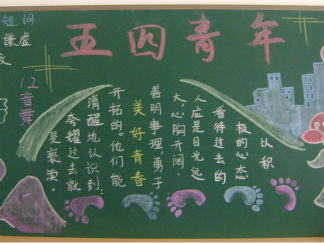 五四青年
短间
谦虚
12音舞
以积
极的心态
看待过去的
人应是目光远
大、心胸开阔、
善明事理、勇于
美好青春
开拓的。他们能
清醒地认识到
夸耀过去就
是褻渎。